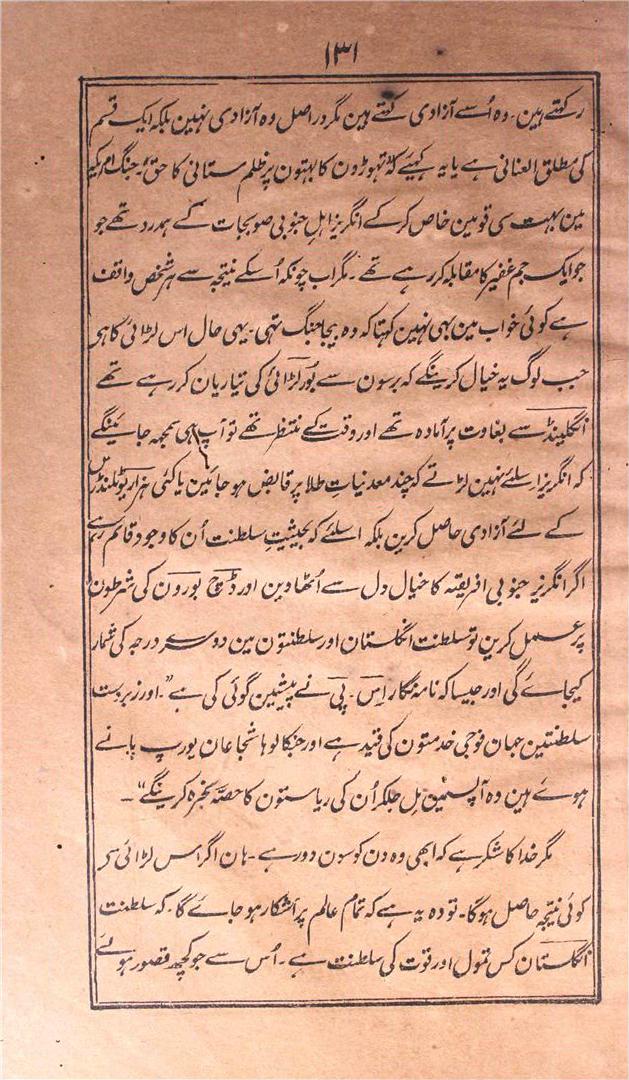 ۱۳۱
رکھتے ہین۔ وہ اُسے آزادی کہتے ہین مگر دراصل وہ آزادی نہین بلکہ ایک قسم
کی مطلق العنانی ہے یا یہ کہیئے کہ تھوڑون کا بہتون پر ظلم ستانی کا حق ! جنگ امریکہ
مین بہت سی قومین خاص کر کے انگریز اہل جنوبی صوبجات کے ہمدرد تھے جو
جو ایک جم غفیر کا مقابلہ کر رہے تھے ۔ مگر اب چونکہ اُسکے نتیجہ سے ہر شخص واقف
ہے کوئی خواب مین بھی نہین کہتا کہ وہ بیجا جنگ تہی۔ یہی حال اس لڑائی کا ہی
جب لوگ یہ خیال کرینگے کہ برسون سے بُور لڑائی کی تیاریان کر رہے تھے
انگلینڈ سے بغاوت پر آمادہ تھے اور وقت کے منتظر تھے تو آپ ہی سمجہہ جائینگے
کہ انگریز اسلئے نہین لڑتے کہ چند معدنیات طلا پر قابض ہو جائین یا کئی ہزار یوٹلنڈرس
کے لئے آزادی حاصل کرین بلکہ اسلئے کہ بحیثیتِ سلطنت اُن کا وجود قائم رہے
اگر انگریز جنوبی افریقہ کا خیال دل سے اُٹھا دین اور ڈچ بورون کی شرطون
پر عمل کرین تو سلطنت انگلستان اور سلطنتون مین دوسرے درجہ کی شمار
کیجاے گی اور جیسا کہ نامہ نگار اِس۔ پی نے پیشین گوئی کی ہے ”۔ اور زبردست
سلطنتین جہان فوجی خدمتون کی قید ہے اور جنکا لوہا شجاعان یورپ مانے
ہوے ہین وہ آپسمین مِل جلکر اُن کی ریاستون کا حصّہ بخرہ کرینگے“ ۔
مگر خدا کا شکر ہے کہ ابھی وہ دن کوسون دور ہے ۔ ہان اگر اس لڑائی سے
کوئی نتیجہ حاصل ہوگا۔ تو وہ یہ ہے کہ تمام عالم پر آشکار ہو جاے گا۔ کہ سلطنت
انگلستان کس تمول اور قوت کی سلطنت ہے ۔ اُس سے جو کچھ قصور ہوئے